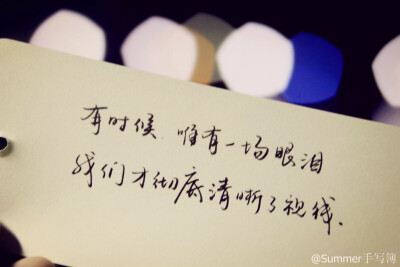 有时候 唯有一场眼泪
我们才彻底清晰了视线.
@Summer手写簿